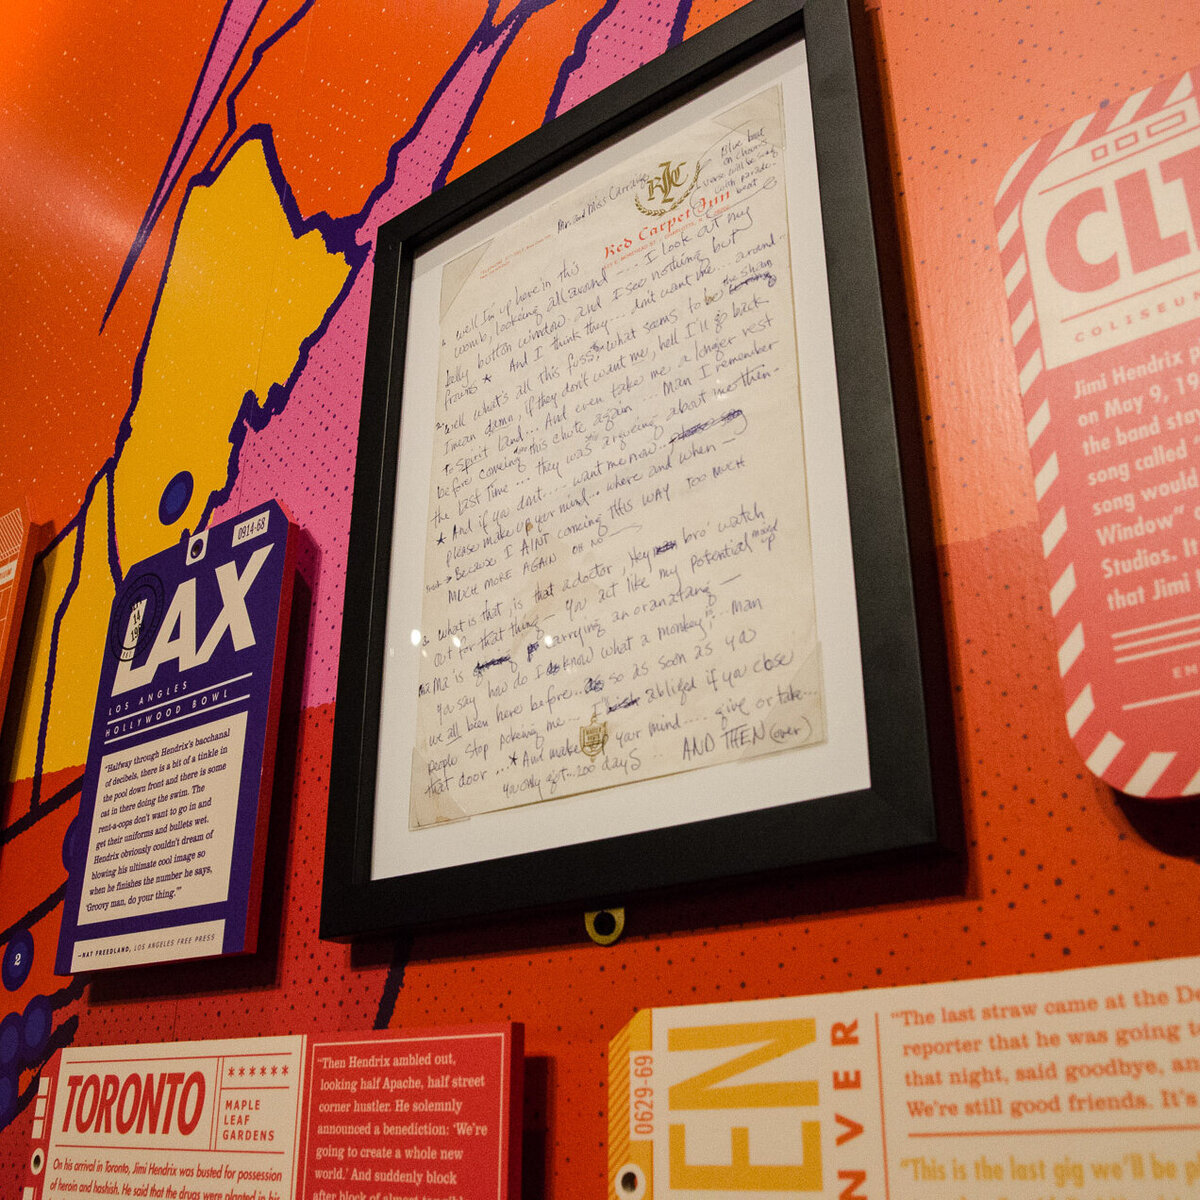 0914-68
LAX
LOS ANGLES
HOLLYWOOD BOWL
"Halfway through Hendrix's bacchanal
of decibels, there is a bit of a tinkle in
the pool down front and there is some
cat in there doing the swim. The
rent-a-cops don't want to go in and
get their uniforms and bullets wet.
Hendrix obviously couldn't dream of
blowing his ultimate cool image so
when he finishes the number he says,
'Groovy man, do your thing.'"
—NAT FREEDLAND, LOS ANGELES FREE PRESS
2
Mr. and Miss Carraige
Blue beat
on chorus
verse will be sung
with parade
beat
RJC
Red Carpet Inn
1. well I'm up here in this
womb, looking all around --- I look out my
belly button window and I see nothing but
frowns * And I think they... don't want me... around..
2. well what's all this fuss, what seems to be the sham
I mean damn, if they don't want me, hell I'll go back
to Spirit land... And even take me a longer rest
before coming down this chute again... Man I remember
the last time... they was argueing about me then-
* And if you dont.... want me now...
please make up your mind... where and when —
Because I AINT comeing THIS WAY TOO MUCH
MUCH MORE AGAIN OH NO —
3. what is that, is that a doctor, Hey bro' watch
out for that thing — you act like my potential
mama is carrying an oranatang —
you say how do I know what a monkey is? man
we all been here before... so as soon as you
people stop pokeing me... I abliged if you close
that door... * And make up your mind.... give or take...
you only got... 200 days AND THEN (over)
CLT
COLISEU
Jimi Hendrix p
on May 9, 19
the band sta
song called
song would
Window"
Studios. It
that Jimi
TORONTO
******
MAPLE
LEAF
GARDENS
On his arrival in Toronto, Jimi Hendrix was busted for possession
of heroin and hashish. He said that the drugs were planted in his
"Then Hendrix ambled out,
looking half Apache, half street
corner hustler. He solemnly
announced a benediction: 'We're
going to create a whole new
world.' And suddenly block
after block of almost
0629-69
EN
NVER
"The last straw came at the De
reporter that he was going t
that night, said goodbye, an
We're still good friends. It's
"This is the last gig we'll be p